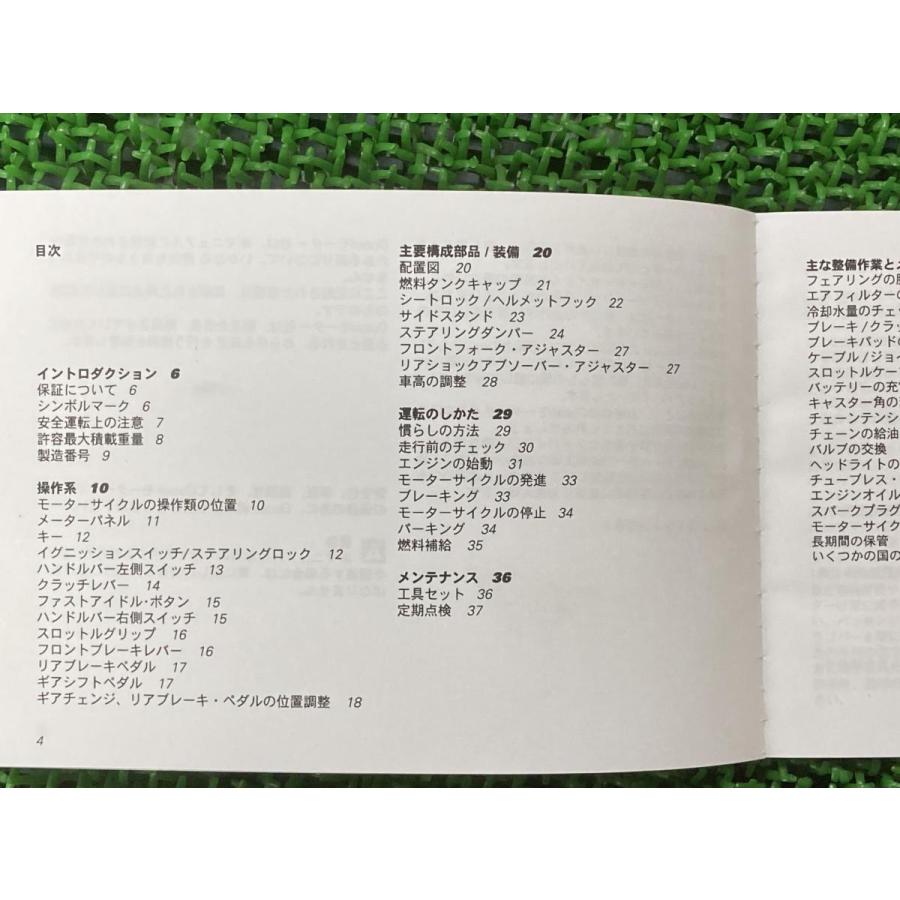 目次
イントロダクション 6
保証について 6
シンボルマーク 6
安全運転上の注意 7
許容最大積載重量 8
製造番号 9
操作系 10
モーターサイクルの操作類の位置 10
メーターパネル 11
キー 12
イグニッションスイッチ/ステアリングロック 12
ハンドルバー左側スイッチ 13
クラッチレバー 14
ファストアイドル・ボタン 15
ハンドルバー右側スイッチ 15
スロットルグリップ 16
フロントブレーキレバー 16
リアブレーキペダル 17
ギアシフトペダル 17
ギアチェンジ、リアブレーキ・ペダルの位置調整 18
4
主要構成部品/装備 20
配置図 20
燃料タンクキャップ 21
シートロック/ヘルメットフック 22
サイドスタンド 23
ステアリングダンパー 24
フロントフォーク・アジャスター 27
リアショックアブソーバー・アジャスター 27
車高の調整 28
運転のしかた 29
慣らしの方法 29
走行前のチェック 30
エンジンの始動 31
モーターサイクルの発進 33
ブレーキング 33
モーターサイクルの停止 34
パーキング 34
燃料補給 35
メンテナンス 36
工具セット 36
定期点検 37
主な整備作業と
フェアリングの
エアフィルターの
冷却水量のチェッ
ブレーキ/クラッ
ブレーキパッドの
ケーブル/ジョイ
スロットルケー
バッテリーの充
キャスター角の
チェーンテンシ
チェーンの給油
バルブの交換
ヘッドライトの
チューブレス・
エンジンオイル
スパークプラグ
モーターサイク
長期間の保管
いくつかの国の